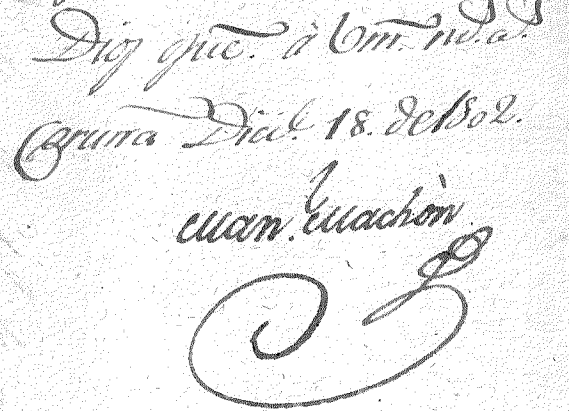 Dios gũe. à Vm. m.s a.s
Coruña Dic.e 18. de 1802.
Man. Machòn